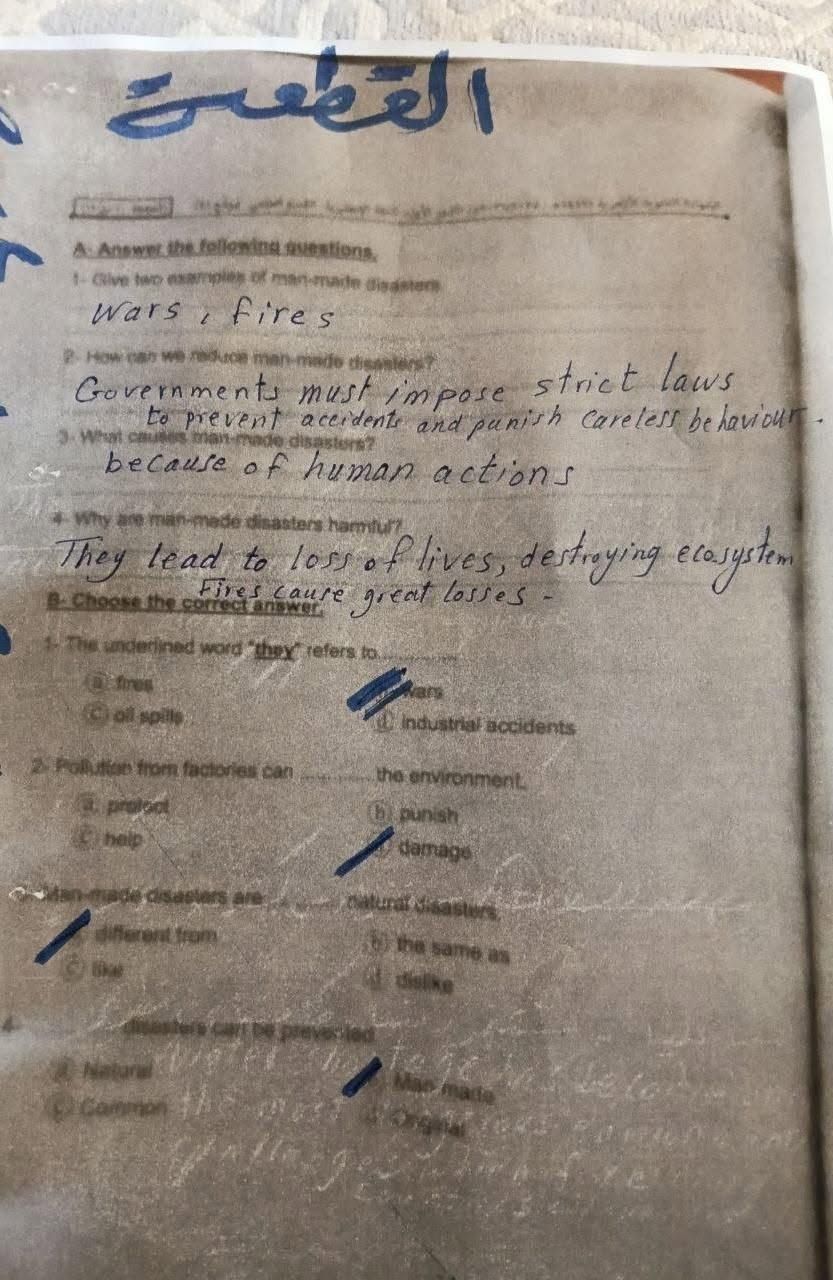 القطعة
A- Answer the following questions.
1- Give two examples of man-made disasters
Wars , fires
2- How can we reduce man-made disasters?
Governments must impose strict laws
to prevent accidents and punish careless behaviour.
3- What causes man-made disasters?
because of human actions
4- Why are man-made disasters harmful?
They lead to loss of lives, destroying ecosystem
Fires cause great losses -
B- Choose the correct answer.
1- The underlined word "they" refers to............
a fires
wars
c oil spills
d industrial accidents
2- Pollution from factories can ............ the environment.
a protect
b punish
c help
damage
Man-made disasters are ............ natural disasters.
different from
b the same as
c like
d dislike
4- disasters can be prevented
a Natural
Man-made
c Common
Original